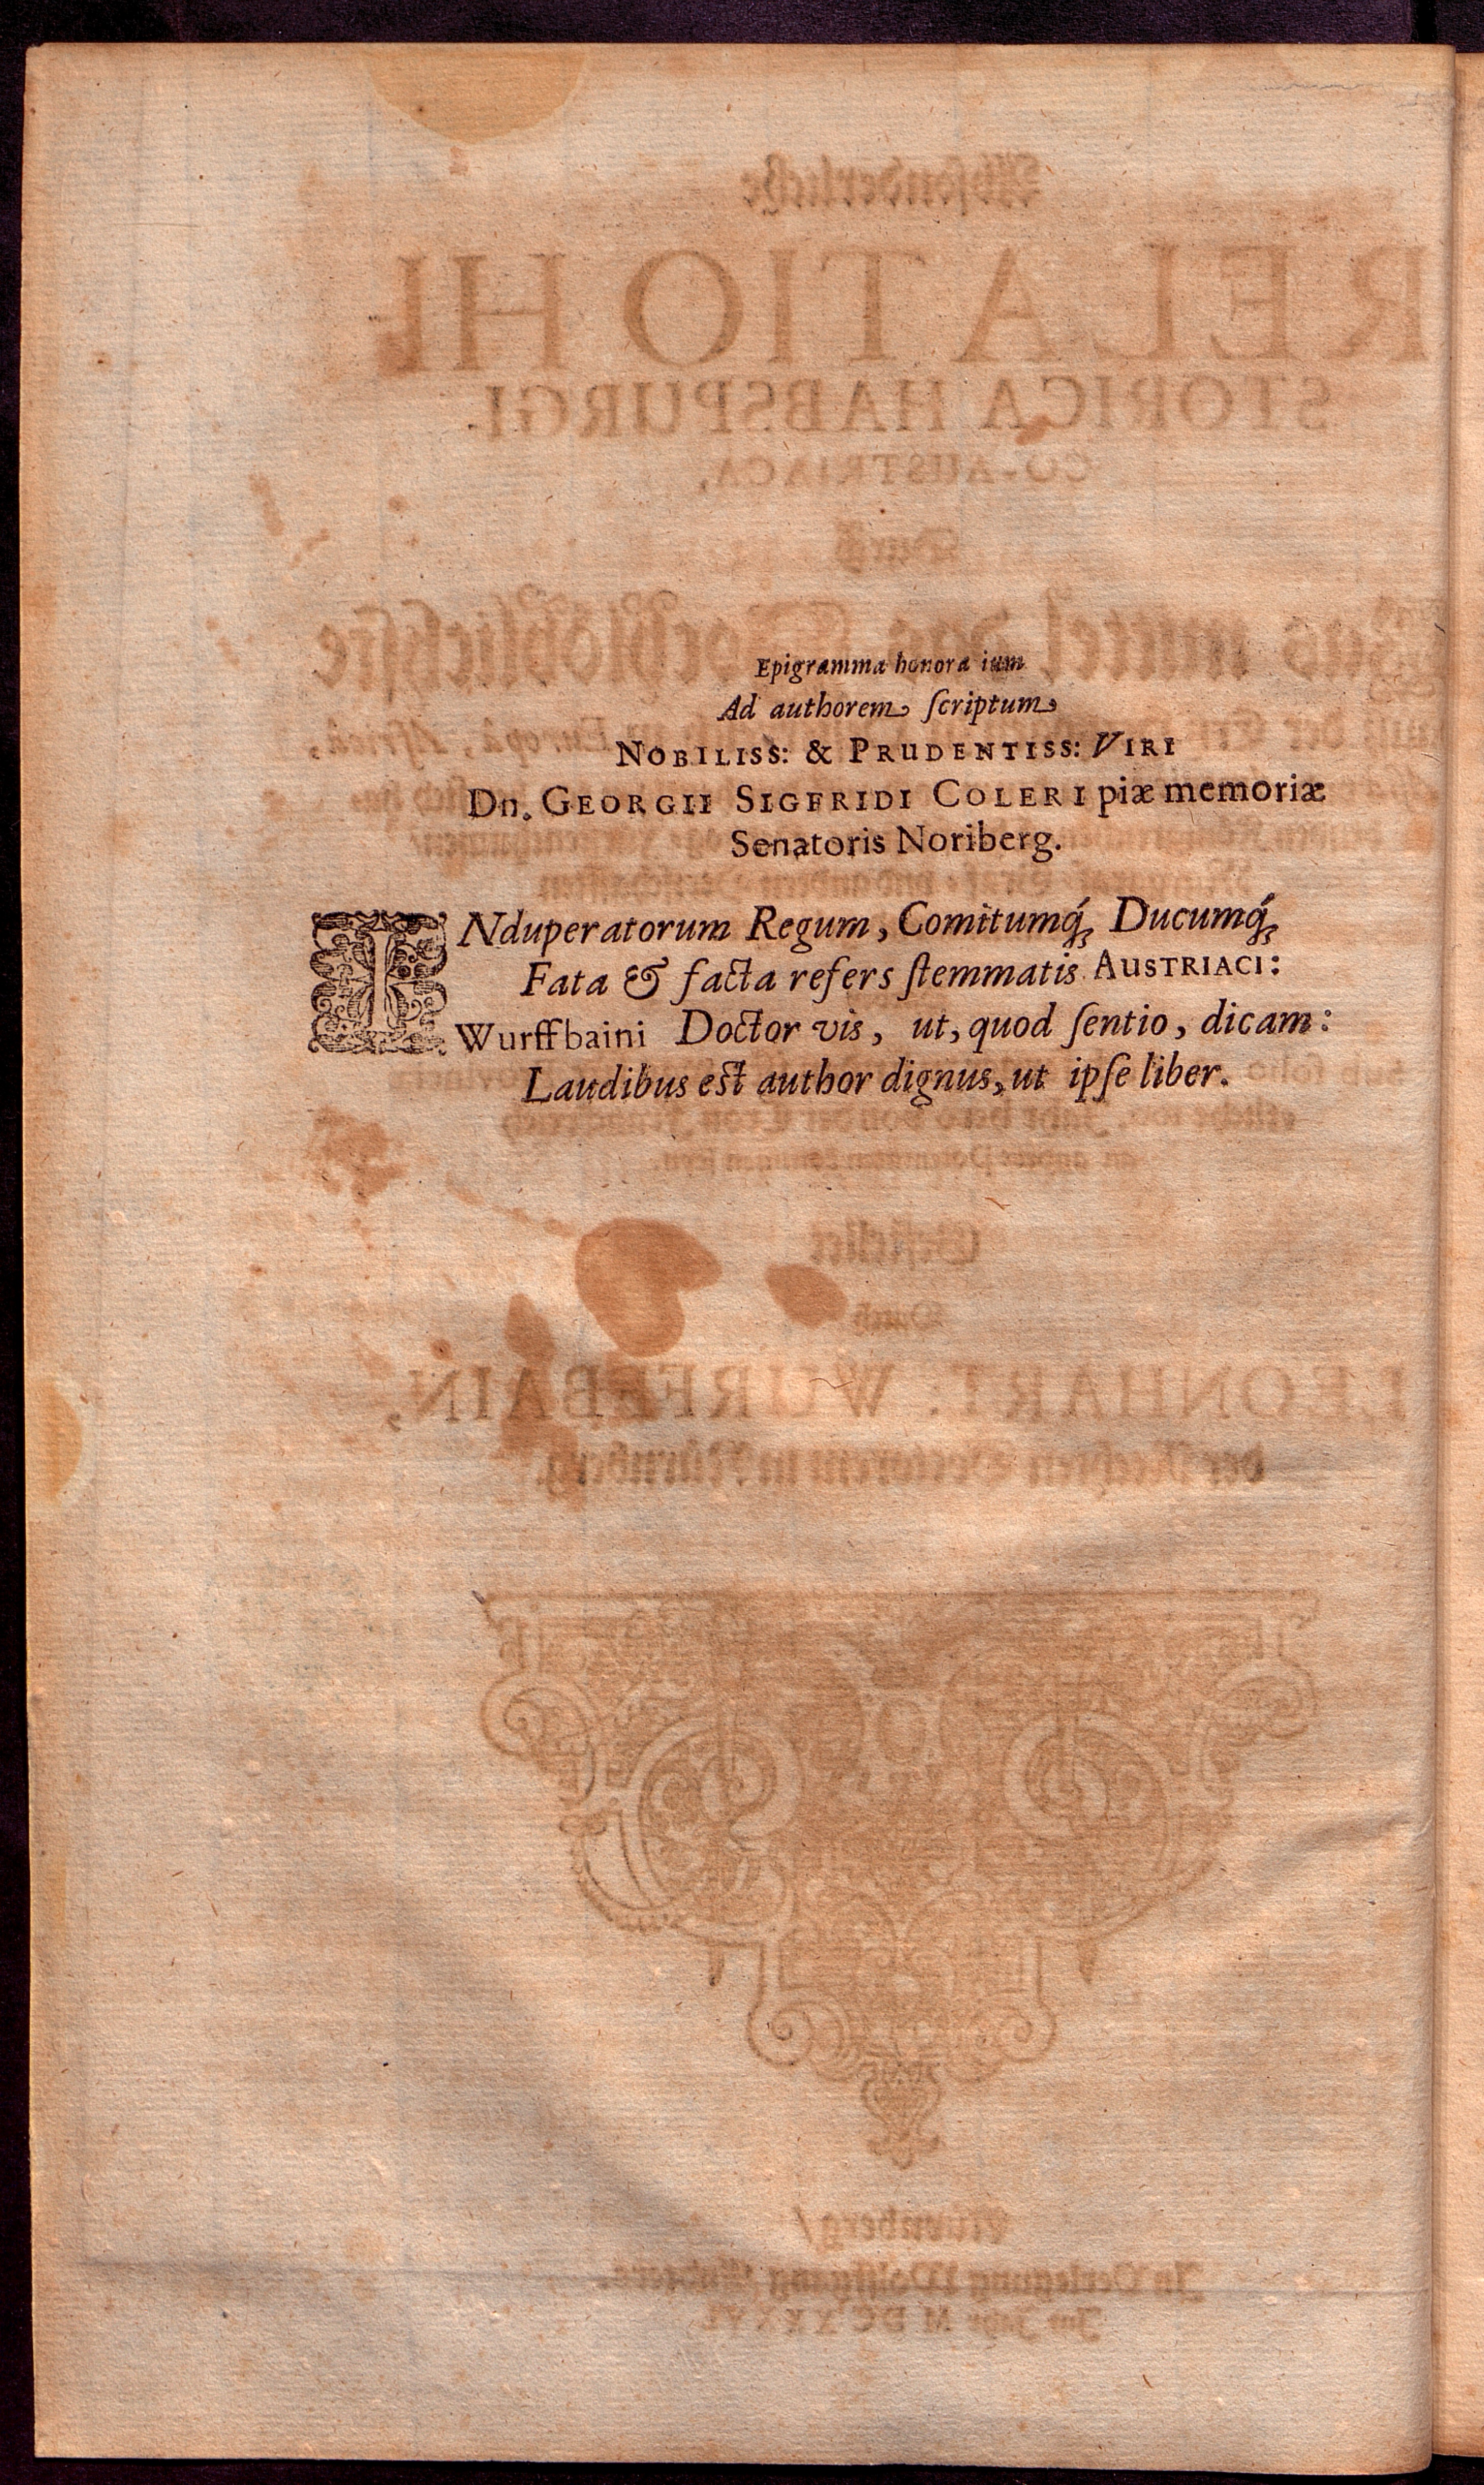 Epigramma honora ium
Ad authorem scriptum
NOBILISS: & PRUDENTISS: VIRI
Dn. GEORGII SIGFRIDI COLERI piæ memoriæ
Senatoris Noriberg.
INduperatorum Regum, Comitumq́; Ducumq́;
Fata & facta refers ſtemmatis AUSTRIACI:
Wurffbaini Doctor vis, ut, quod ſentio, dicam:
Laudibus eſt author dignus, ut ipſe liber.